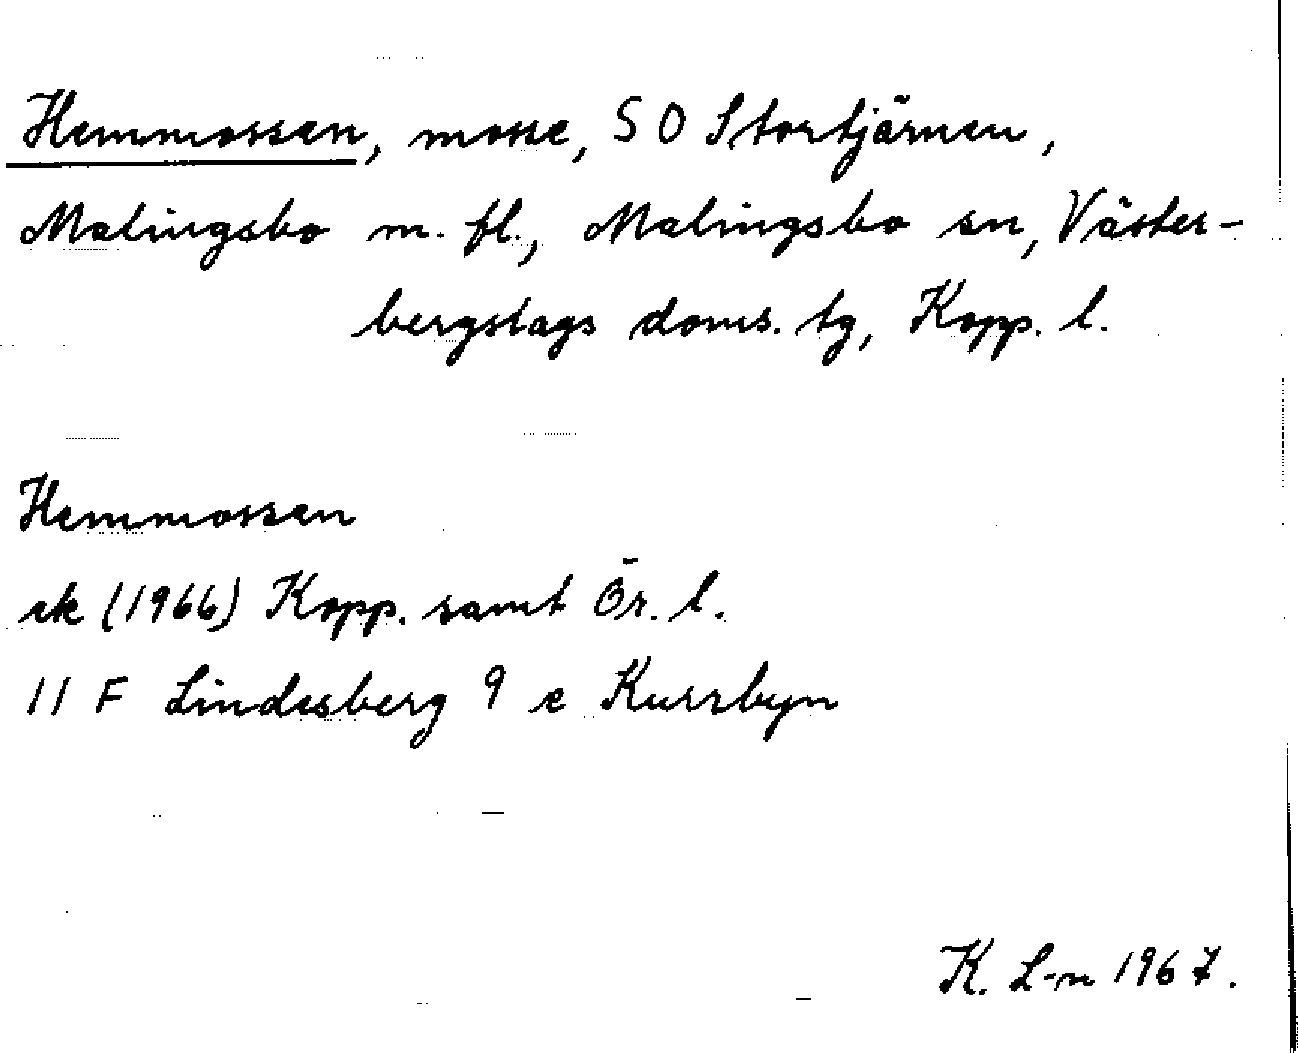 Hemmossen, mosse, SO Stortjärnen,
Malingsbo m. fl., Malingsbo sn, Väster-
bergslags doms. tg, Kopp. l.
Hemmossen
ek (1966) Kopp. samt Ör. l.
11 F Lindesberg 9 e Kursbyn
K. L-n 1967.